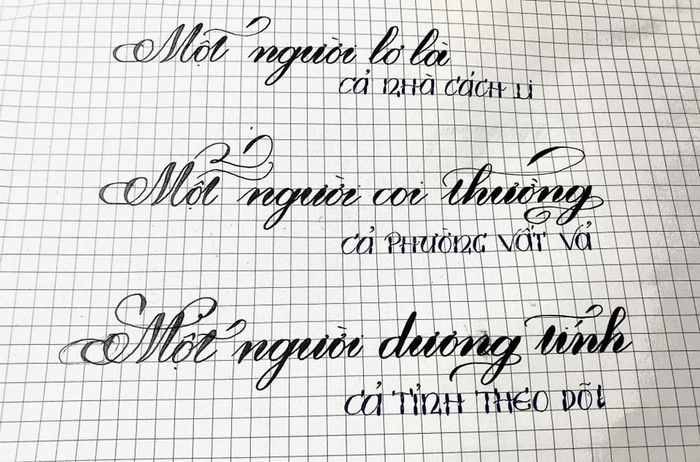 Một người lơ là
CẢ NHÀ CÁCH LI
Một người coi thường
CẢ PHƯỜNG VẤT VẢ
Một người dương tính
CẢ TỈNH THEO DÕI